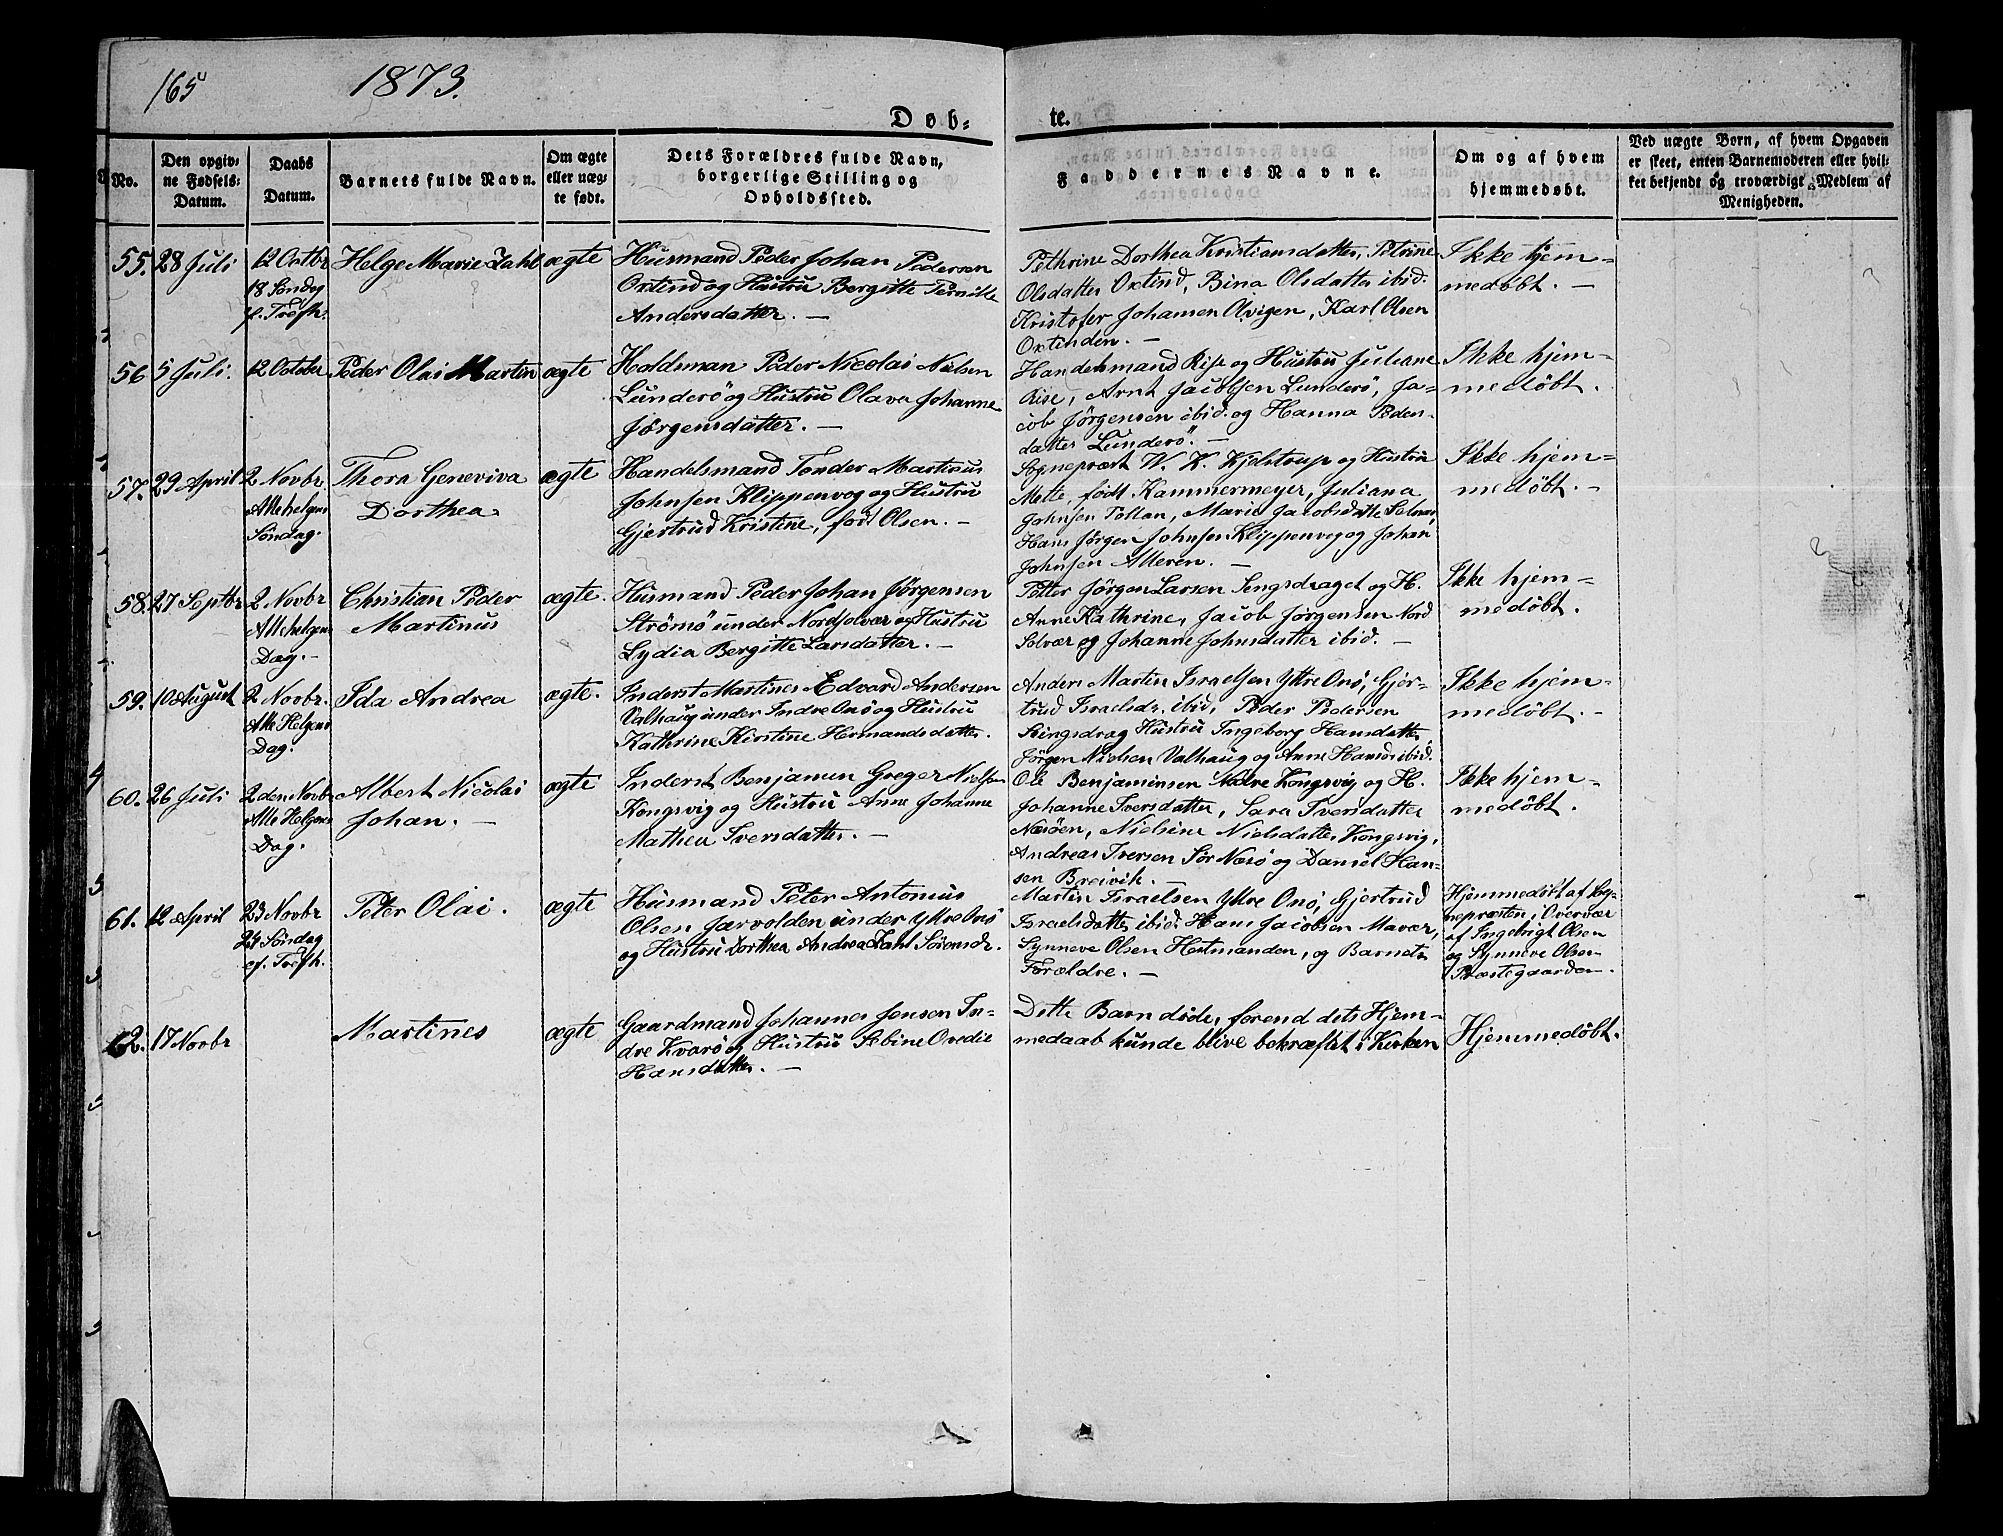 165
1873.
Døb=
te.
No.
Den opgiv=
ne Fødsels=
Datum.
Daabs
Datum.
Barnets fulde Navn.
Om ægte
eller uæg=
te født.
Dets Forældres fulde Navn,
borgerlige Stilling og
Opholdssted.
Faddernes Navne.
Om og af hvem
hjemmedøbt.
Ved uægte Børn, af hvem Opgaven
er skeet, enten Barnemoderen eller hvil=
ket bekjendt og troværdigt Medlem af
Menigheden.
55.
28 Juli
12 Octbr
18 Søndag
f. Trefh.
Helge Marie Zahl
ægte
Husmand Peder Johan Pedersen
Oxtind og Hustru Bergitte Pernille
Andersdatter. —
Pethrine Dorthea Kristiansdatter, Petrine
Olsdatter Oxtind, Bina Olsdatter ibid.
Kristofer Johansen Alvigen, Karl Olsen
Oxtinden. —
Ikke hjem=
medøbt. —
56
5 Juli.
12 October
Peder Olai Martin
ægte
Holdsman Peder Nicolai Nielsen
Lunderö og Hustru Olava Johanne
Jørgensdatter. —
Handelsmand Rise og Hustru Juliane
Rise, Arnt Jacobsen Lunderö, Ja=
cob Jørgensen ibid. og Hanna Peders
datter Lunderö. —
Ikke hjem=
medøbt.
57.
29 April
2 Novbr.
Allehelgens
Søndag.
Thora Geneviva
Dorthea
ægte
Handelsmand Tønder Martinus
Johnsen Klippenvog og Hustru
Gjertrud Kristine, født Olsen. —
Sogneprest W. K. Kjelstrup og Hustru
Mette, født Kammermeyer, Juliana
Johnsen Tollan, Marie Jacobsdatter Selnes,
Hans Jørgen Johnsen Klippenvog og Johan
Johnsen Alteren. —
Ikke hjem=
medøbt. —
58.
27 Septbr
2 Novbr
Allehelgens
Dag. —
Christian Peder
Martinus
ægte.
Husmand Peder Johan Jørgensen
Strømö under Nordsolvær og Hustru
Lydia Bergitte Larsdatter. —
Potter Jørgen Larsen Sengsdraget og H.
Anne Kathrine, Jacob Jørgensen Nord
Solvær og Johanne Johnsdatter ibid. —
Ikke hjem=
medøbt.
59.
10 August
2 Novbr.
Alle Helgens
Dag.
Ida Andrea
ægte.
Inderst Martines Edvard Andersen
Valhaug under Indre Onö og Hustru
Kathrine Kirstine Hermandsdatter.
Anders Martin Israelsen Yttre Onö, Gjer=
trud Israelsdr. ibid., Peder Pedersen
Sengsdrag Hustru Ingeborg Hansdatter,
Jørgen Nielsen Valhaug og Anne Hansdr ibid.
Ikke hjem=
medøbt. —
60.
26 Juli
2 den Novbr
Alle Helgens
Dag.
Albert Nicolai
Johan. —
ægte
Inderst Benjamin Greger Nielsen
Kongsvig og Hustru Anne Johanne
Mathea Iversdatter. —
Ole Benjaminsen Nedre Kongsvig og H.
Johanne Iversdatter, Sara Iversdatter
Næsöen, Nielsine Nielsdatter Kongsvig,
Andreas Iversen Sör Næsö og Daniel Han=
sen Breivik. —
Ikke hjem=
medøbt.
61.
12 April
23 Novbr
24 Søndag
ef. Trefh.
Peter Olai.
ægte
Husmand Peter Antonius
Olsen Jarvolden under Yttre Onö
og Hustru Dorthea Andrea Zahl Sörensdr.
Martin Israelsen Yttre Onö, Gjertrud
Israelsdatter ibid. Hans Jacobsen Mavær,
Synneve Olsen Hestmanden, og Barnets
Forældre. —
Hjemmedöbt af Sog=
nepræsten i Overvær
af Ingebrigt Olsen
og Synneve Olsen
Præstegaarden.
62.
17 Novbr
Martines
ægte
Gaardmand Johannes Jensen In=
dre Kvarö og Hustru Sebine Ovedie
Hansdatter. —
Dette Barn døde, førend dets Hjem=
medaab kunde blive bekræftet i Kirken
Hjemmedöbt.